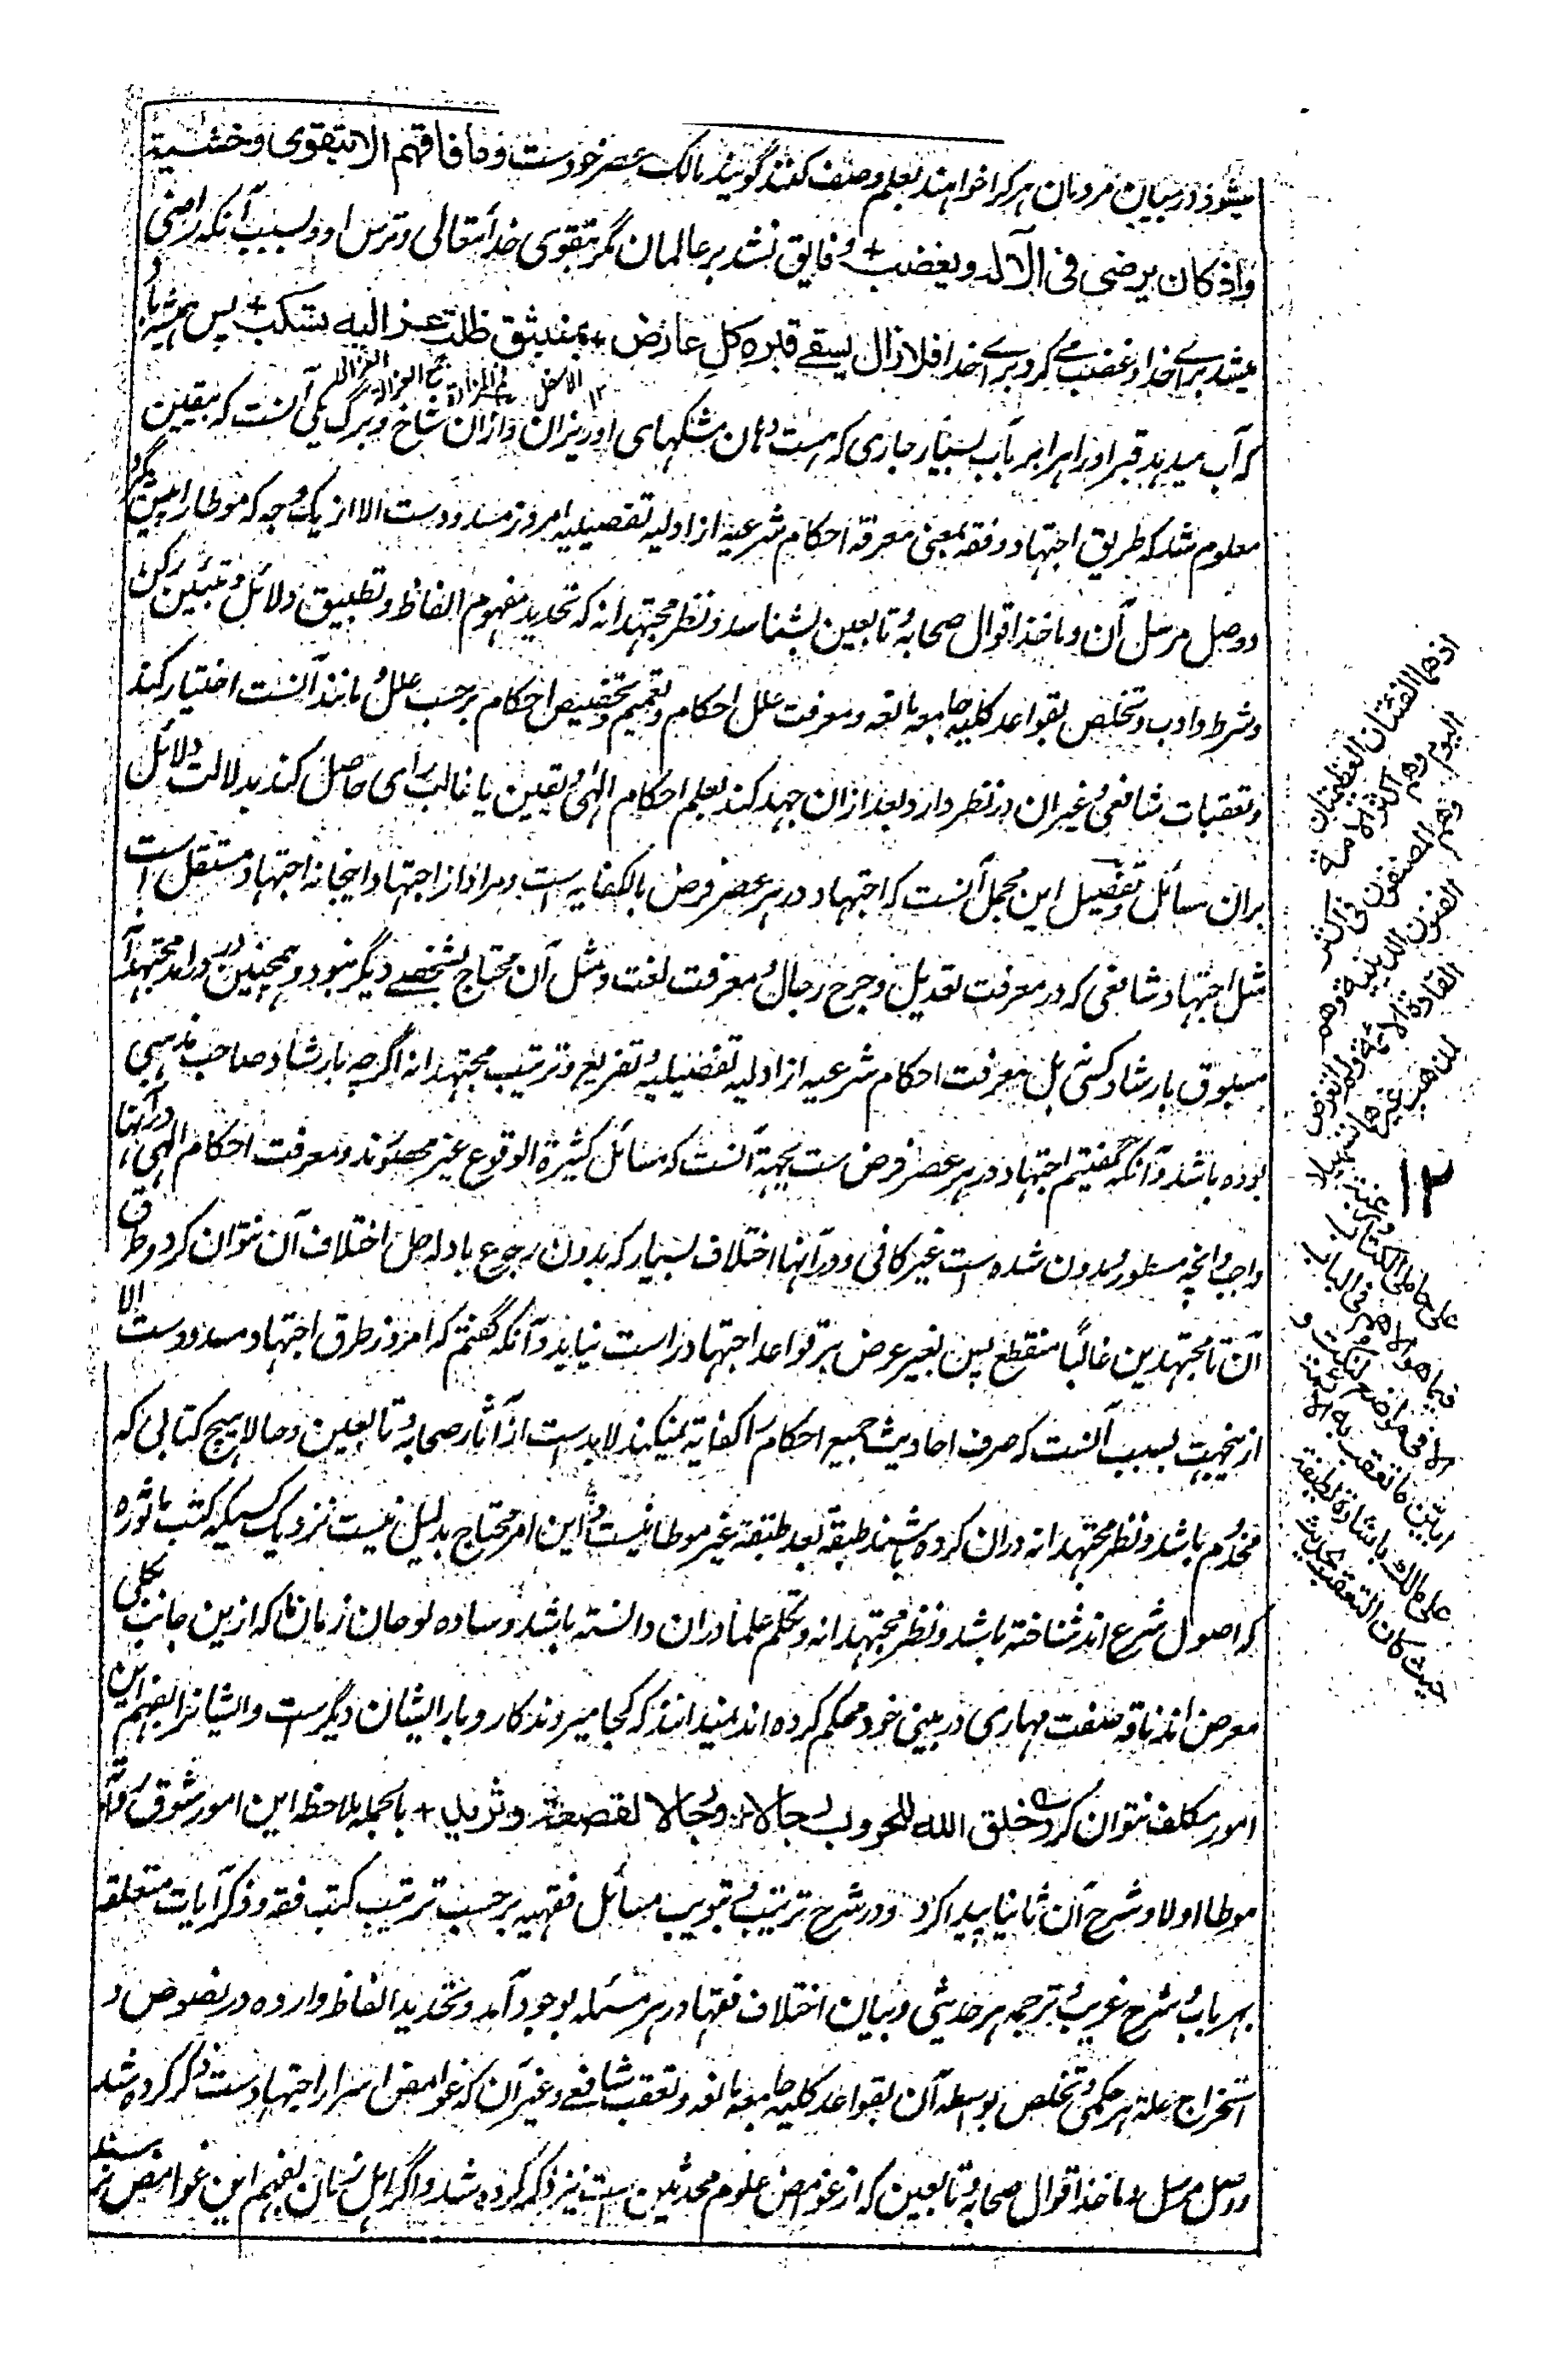 میشود در میان مردمان هر کرا خواهند بعلم وصف کنند گویند مالک عصر خودست وما فاقهم الا بتقوی وخشیة
واذ کان یرضی فی الآله ویغضب + و فایق نشد بر عالمان مگر بتقوی خدا تعالی و ترس او و بسبب آنکه راضی
میشد برای خدا و غضب می کرد برای خدا فلا زال یسقی قبره کل عارض + بمنبثق ظلت عزالیه تسکب + پس همیشه باد
که آب میدهد قبر او را هر ابر باب بسیار جاری که هست دهان مشکهای او ریزان وازان شاخ و برگ یکی آنست که بیقین
معلوم شد که طریق اجتهاد و فقه بمعنی معرفة احکام شرعیه از ادلیه تفصیلیه امروز مسدودست الا از یک وجه که موطا را پیش گیرد
و وصل مرسل آن و ماخذ اقوال صحابه و تابعین بشناسد و نظر مجتهدانه که تحدید مفهوم الفاظ و تطبیق دلائل و تبیین رکن
و شرط و ادب و تخلص بقواعد کلیه جامعه مانعه و معرفت علل احکام و تعمیم و تخصیص احکام بر حسب علل و مانند آنست اختیار کند
و تعقبات شافعی و غیر آن در نظر دارد و بعد ازان جهد کند بعلم احکام الهی و بیقین یا غالب رای حاصل کند بدلالت دلائل
بران مسائل و تفصیل این مجمل آنست که اجتهاد در هر عصر فرض بالکفایه است و مراد از اجتهاد اینجا نه اجتهاد مستقل است
مثل اجتهاد شافعی که در معرفت تعدیل و جرح رجال و معرفت لغت و مثل آن محتاج بشخصے دیگر نبود و همچنین در
مسبوق بارشاد کسی بل معرفت احکام شرعیه از ادلیه تفصیلیه و تفریع و ترتیب مجتهدانه اگرچه بارشاد صاحب مذهبی
بوده باشد و آنکه گفتیم اجتهاد در هر عصر فرض ست بجهة آنست که مسائل کثیرة الوقوع غیر محصورند و معرفت احکام الهی در آنها
واجب و آنچه مسطور و مدون شده است غیر کافی و در آنها اختلاف بسیار که بدون رجوع بادله حل اختلاف آن نتوان کرد و طرق
آن تا مجتهدین غالباً منقطع پس بغیر عرض بر قواعد اجتهاد راست نیاید و آنکه گفتم که امروز طرق اجتهاد مسدودست الا
ازینجهت بسبب آنست که صرف احادیث جمیع احکام را کفایه نمیکند لا بدست از آثار صحابه و تابعین و حالا هیچ کتابی که
مخدوم باشد و نظر مجتهدانه دران کرده باشند طبقة بعد طبقة غیر موطا نیست و این امر محتاج بدلیل نیست نزدیک کسیکه کتب ماثوره
که اصول شرع اند شناخته باشد و نظر مجتهدانه و تکلم علما دران دانسته باشد و ساده لوحان زمان ما که ازین جانب بکلی
معرض اند ناقه صفت مهاری در بینی خود محکم کرده اند نمیدانند که کجا میروند کار و بار ایشان دیگرست و ایشانرا بفهم این
امور مکلف نتوان کرد خلق الله للحروب رجالا + ورجالا لقصعة وثرید + بالجمله بملاحظه این امور شوق
موطا اولا و شرح آن ثانیا پیدا کرد و در شرح ترتیب و تبویب مسائل فقهیه بر حسب ترتیب کتب فقه و ذکر آیات متعلقه
بهر باب و شرح غریب و ترجمه هر حدیثی و بیان اختلاف فقها در هر مسئله بوجود آمد و تحدید الفاظ وارده در نصوص و
استخراج علة هر حکمی و تخلص بواسطه آن بقواعد کلیه جامعه مانعه و تعقب شافعے و غیر آن که غوامض اسرار اجتهادست ذکر کرده شد
و وصل مرسل و ماخذ اقوال صحابه و تابعین که از غوامض علوم محدثین است نیز ذکر کرده شد و اگر اهل زمان بفهم این غوامض
اذهما الفئتان العظیمتان
الیوم وهم اکثر الامة
وهم المصنفون فی اکثر
الفنون الدینیة وهم
القادة الائمة
۱۲